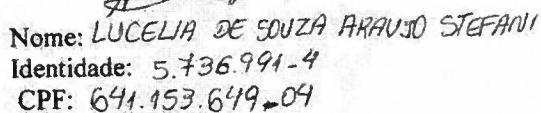 Nome: LUCELIA DE SOUZA ARAUJO STEFANI
Identidade: 5.736.991-4
CPF: 641.153.649-04